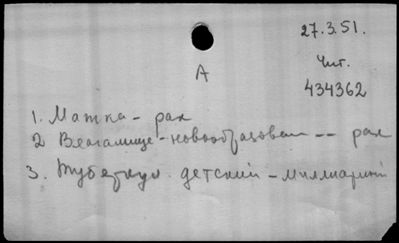 27.3.51.
Чит.
434362
А
1. Матка - рак
2 Влагалище - новообразован -- рак
3. Туберкул. детский - миллиарный